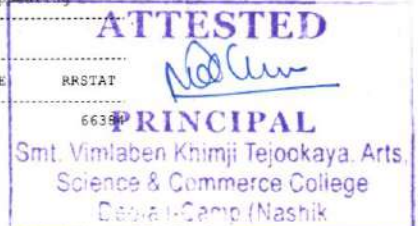 ATTESTED
E RRSTAT
PRINCIPAL
Smt. Vimlaben Khimji Tejookaya. Arts,
Science & Commerce College
-Camp (Nashik